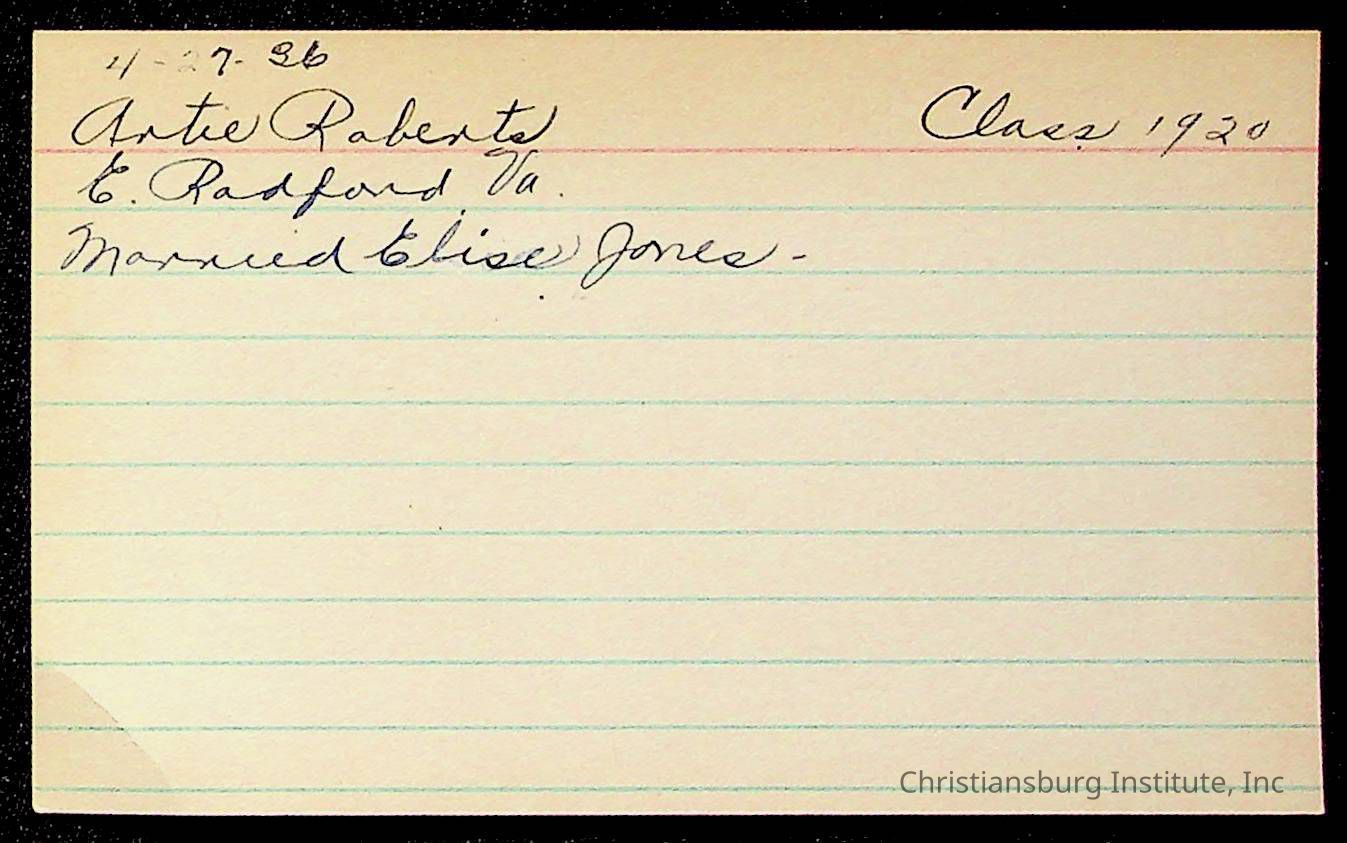 4-27-36
Artie Roberts Class 1920
E. Radford, Va.
Married Elise Jones -
Christiansburg Institute, Inc